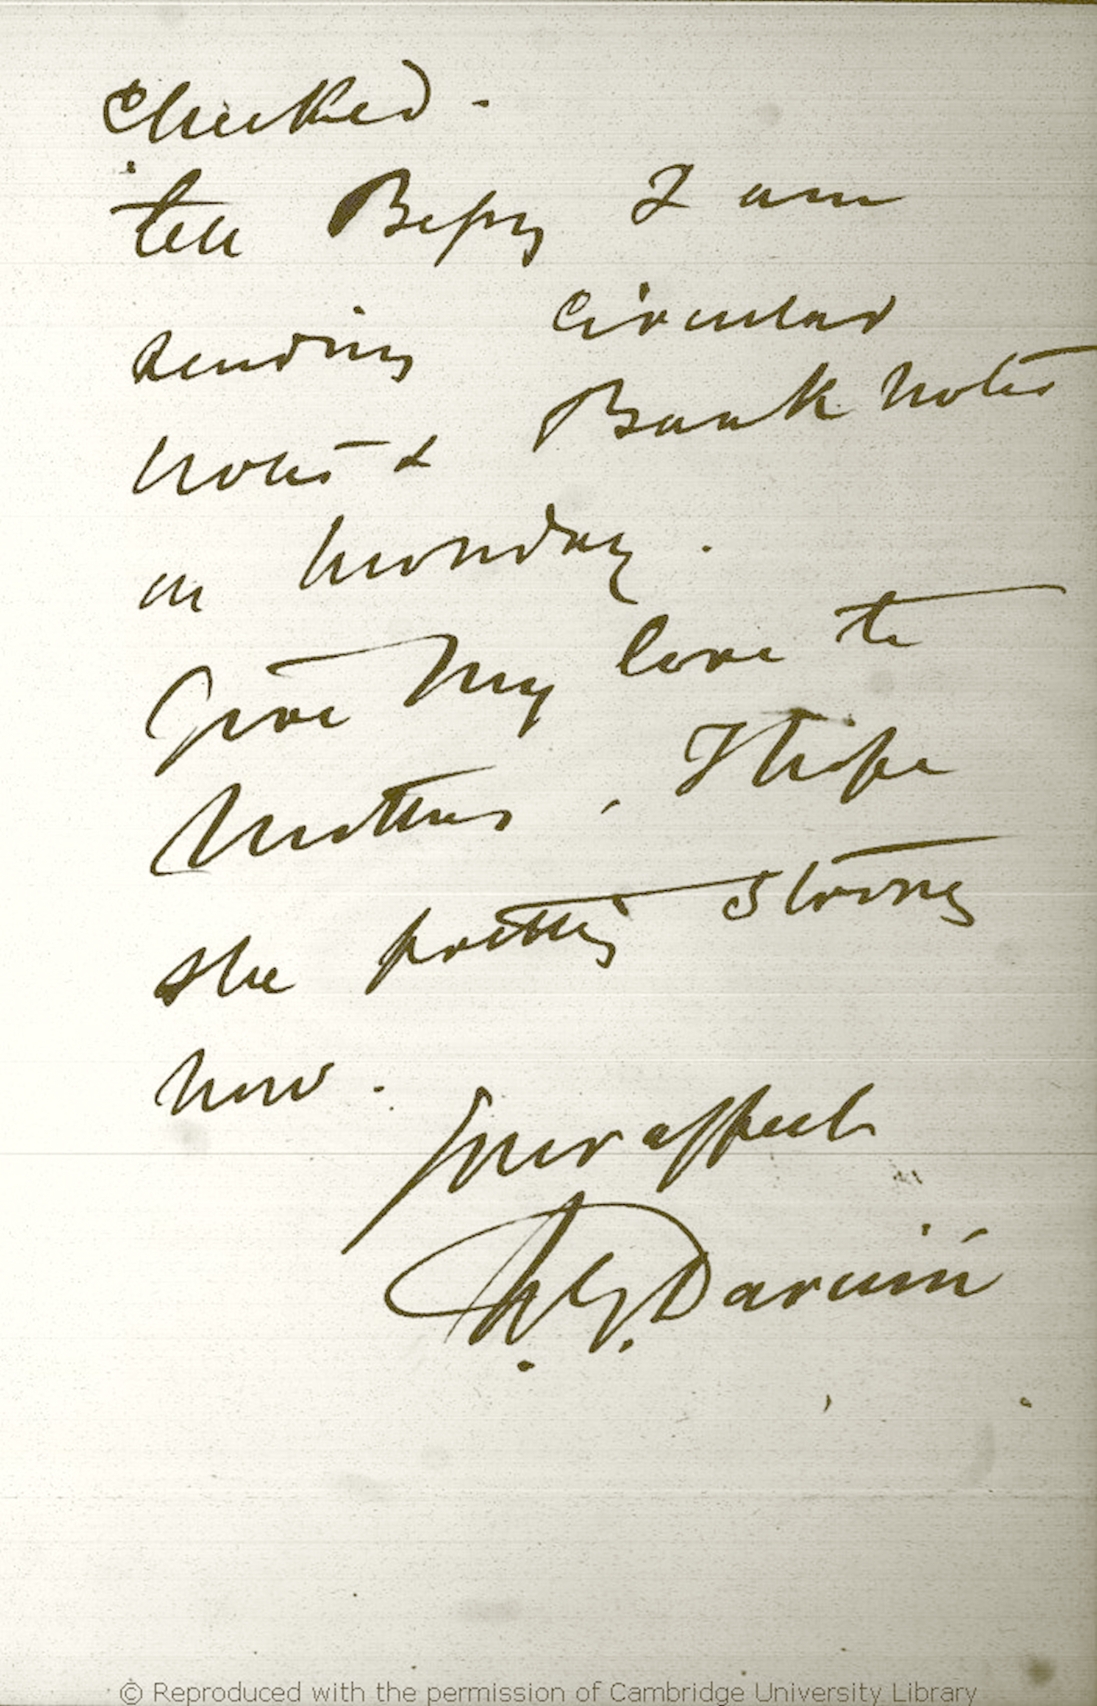 checked.
tell Bessy I am
sending circular
notes & Bank notes
on Monday.
Give my love to
Mother, I hope
she pretty strong
now.
Your affect
W. E. Darwin
© Reproduced with the permission of Cambridge University Library